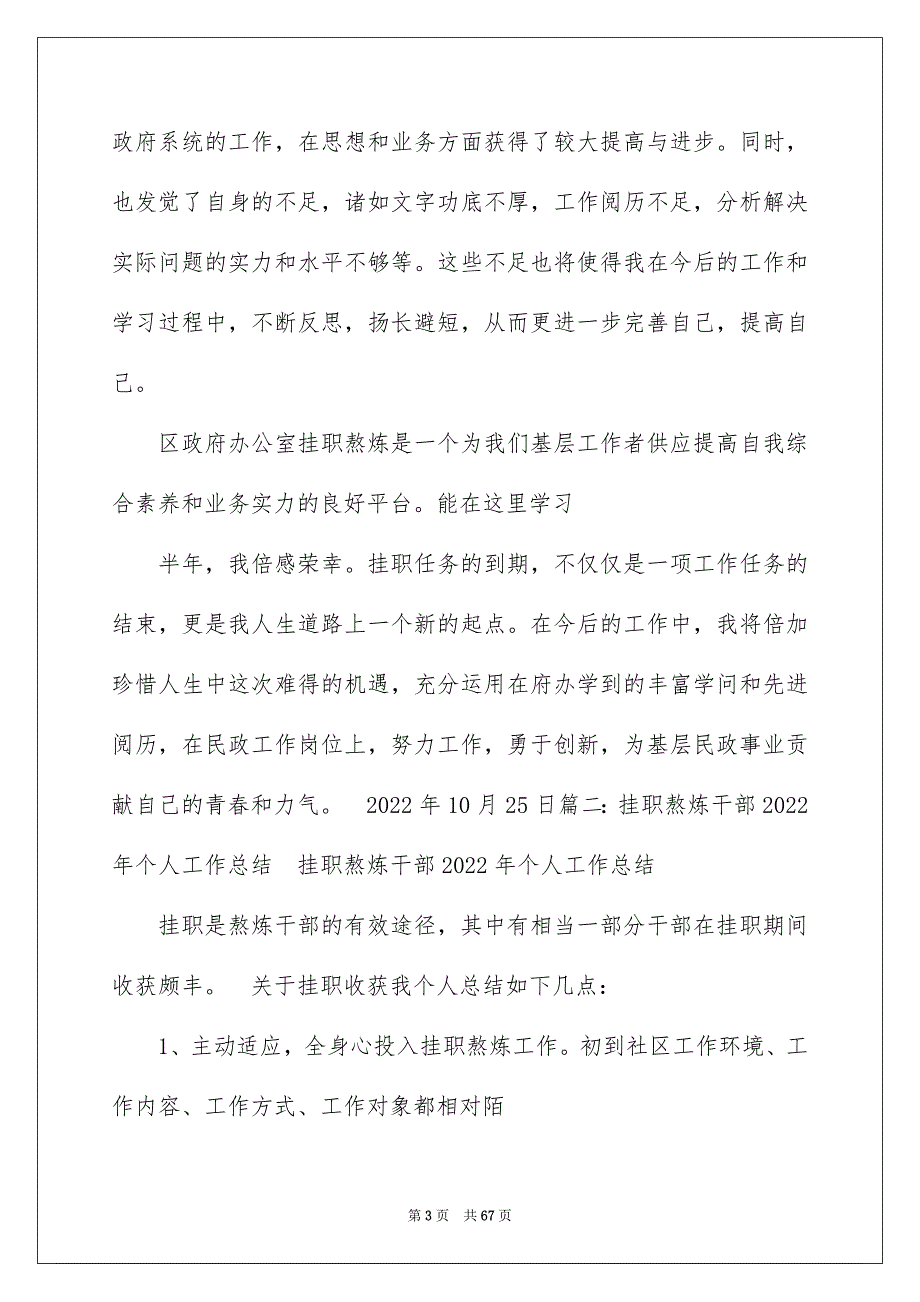 政府系统的工作，在思想和业务方面获得了较大提高与进步。同时，
也发觉了自身的不足，诸如文字功底不厚，工作阅历不足，分析解决
实际问题的实力和水平不够等。这些不足也将使得我在今后的工作和
学习过程中，不断反思，扬长避短，从而更进一步完善自己，提高自
己。
区政府办公室挂职熬炼是一个为我们基层工作者供应提高自我综
合素养和业务实力的良好平台。能在这里学习
半年，我倍感荣幸。挂职任务的到期，不仅仅是一项工作任务的
结束，更是我人生道路上一个新的起点。在今后的工作中，我将倍加
珍惜人生中这次难得的机遇，充分运用在府办学到的丰富学问和先进
阅历，在民政工作岗位上，努力工作，勇于创新，为基层民政事业贡
献自己的青春和力气。　2022 年 10 月 25 日篇二：挂职熬炼干部 2022
年个人工作总结　挂职熬炼干部 2022 年个人工作总结
挂职是熬炼干部的有效途径，其中有相当一部分干部在挂职期间
收获颇丰。　关于挂职收获我个人总结如下几点：
1、主动适应，全身心投入挂职熬炼工作。初到社区工作环境、工
作内容、工作方式、工作对象都相对陌
第 3 页　共 67 页